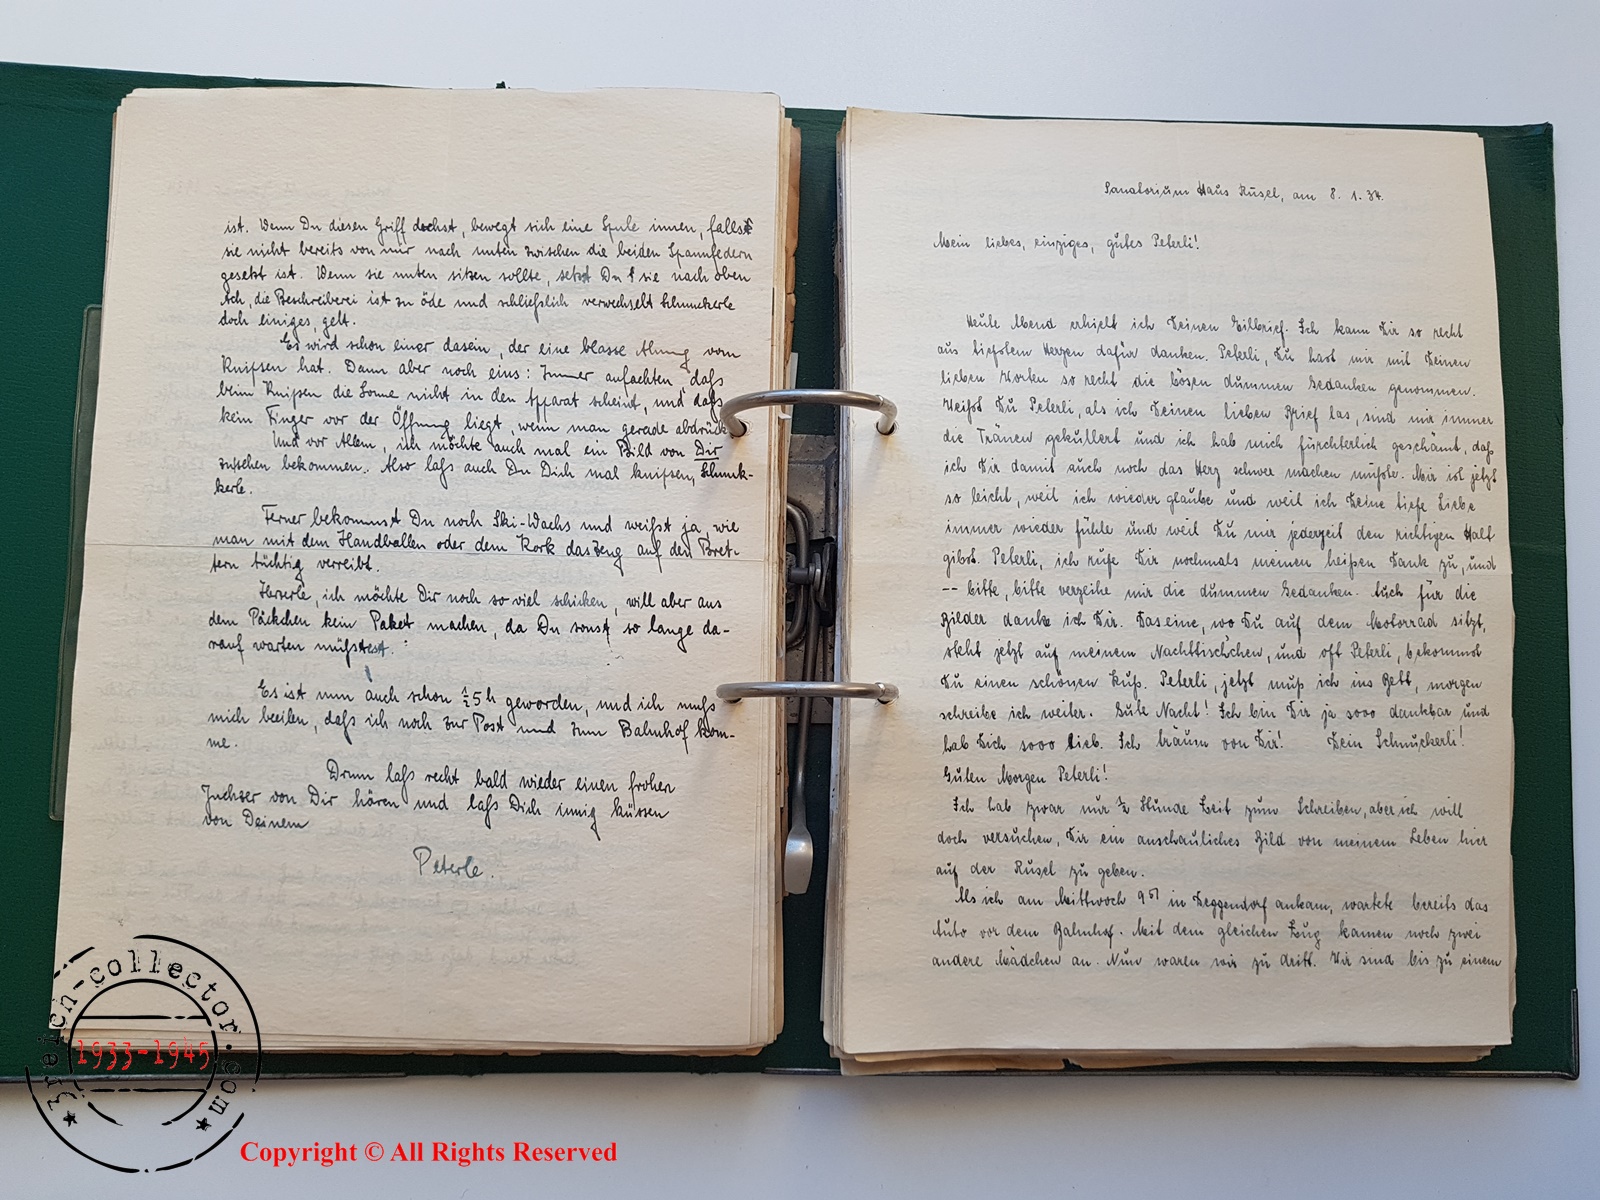 ist. Wenn Du diesen Griff drehst, bewegt sich eine Spule innen, falls
sie nicht bereits von mir nach unten zwischen die beiden Spannfedern
gesetzt ist. Wenn sie unten sitzen sollte, setzt Du sie nach oben
Ach, die Beschreiberei ist zu öde und schließlich verwechselt Schnuckerle
doch einiges, gelt.
Es wird schon einer dasein, der eine blasse Ahnung vom
Knipsen hat. Dann aber noch eins: Immer aufachten, daß
beim Knipsen die Sonne nicht in den Apparat scheint, und daß
kein Finger vor der Öffnung liegt, wenn man gerade abdrück
Und vor Allem, ich möchte auch mal ein Bild von Dir
zusehen bekommen. Also laß auch Du Dich mal knipsen, Schnuk-
kerle.
Ferner bekommst Du noch Ski-Wachs und weißt ja, wie
man mit dem Handballen oder dem Kork das Zeug auf den Bret-
tern tüchtig verreibt.
Herzerle, ich möchte Dir noch so viel schicken, will aber aus
dem Päckchen kein Paket machen, da Du sonst so lange da-
rauf warten müßtest.
Es ist nun auch schon ½5 h geworden, und ich muß
mich beeilen, daß ich noch zur Post und zum Bahnhof kom-
me.
Drum laß recht bald wieder einen frohen
Juchzer von Dir hören und laß Dich innig küssen
von Deinem
Peterle.
Sanatorium Haus Rusel, am 8. 1. 34.
Mein liebes, einziges, gutes Peterli!
Heute Abend erhielt ich Deinen Eilbrief. Ich kann Dir so recht
aus tiefstem Herzen dafür danken. Peterli, Du hast mir mit Deinen
lieben Worten so recht die bösen dummen Gedanken genommen.
Weißt Du Peterli, als ich Deinen lieben Brief las, sind mir immer
die Tränen gekullert und ich hab mich fürchterlich geschämt, daß
ich Dir damit auch noch das Herz schwer machen mußte. Mir ist jetzt
so leicht, weil ich wieder glaube und weil ich Deine tiefe Liebe
immer wieder fühle und weil Du mir jederzeit den richtigen Halt
gibst. Peterli, ich rufe Dir nochmals meinen heißen Dank zu, und
-- bitte, bitte verzeihe mir die dummen Gedanken. Auch für die
Bilder danke ich Dir. Das eine, wo Du auf dem Motorrad sitzt,
steht jetzt auf meinem Nachttischchen, und oft Peterli, bekommst
Du einen schönen Kuß. Peterli, jetzt muß ich ins Bett, morgen
schreibe ich weiter. Gute Nacht! Ich bin Dir ja sooo dankbar und
hab Dich sooo lieb. Ich träum von Dir! Dein Schnuckerli!
Guten Morgen Peterli!
Ich hab zwar nur ½ Stunde Zeit zum Schreiben, aber ich will
doch versuchen, Dir ein anschauliches Bild von meinem Leben hier
auf der Rusel zu geben.
Als ich am Mittwoch 9 51 in Deggendorf ankam, wartete bereits das
Auto vor dem Bahnhof. Mit dem gleichen Zug kamen noch zwei
andere Mädchen an. Nun waren wir zu dritt. Wir sind bis zu einem
3reich-collector.com
1933-1945
Copyright © All Rights Reserved